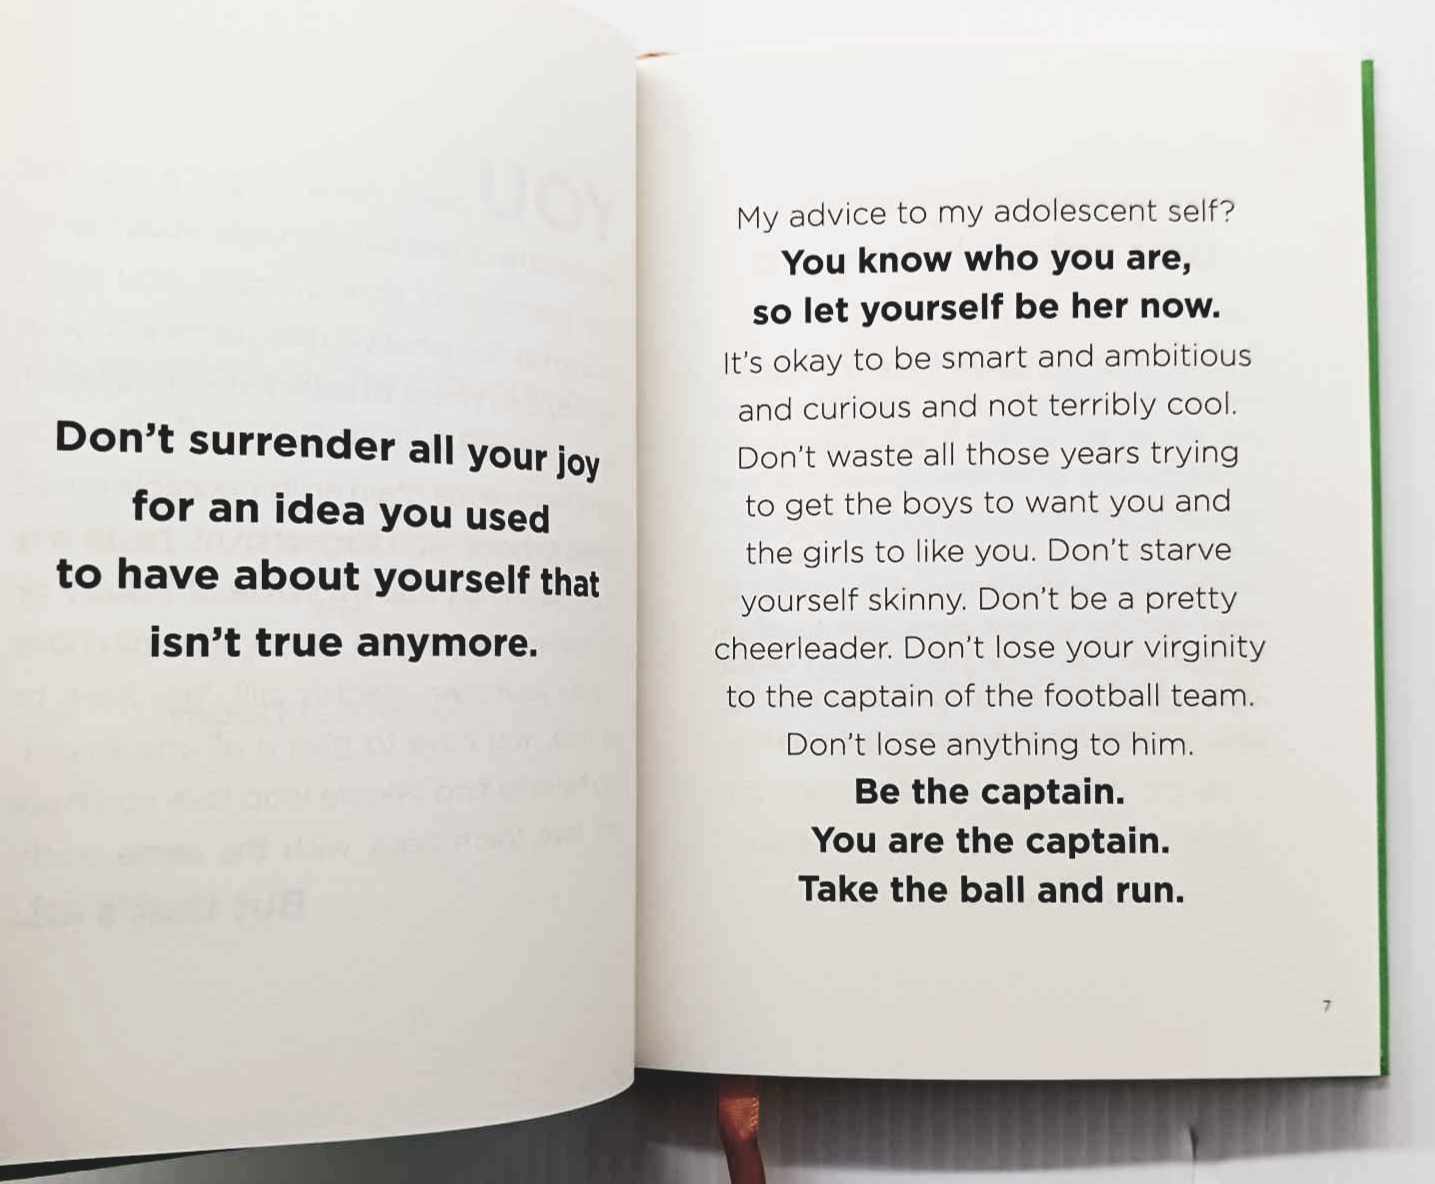 Don't surrender all your joy
for an idea you used
to have about yourself that
isn't true anymore.
My advice to my adolescent self?
You know who you are,
so let yourself be her now.
It's okay to be smart and ambitious
and curious and not terribly cool.
Don't waste all those years trying
to get the boys to want you and
the girls to like you. Don't starve
yourself skinny. Don't be a pretty
cheerleader. Don't lose your virginity
to the captain of the football team.
Don't lose anything to him.
Be the captain.
You are the captain.
Take the ball and run.
7